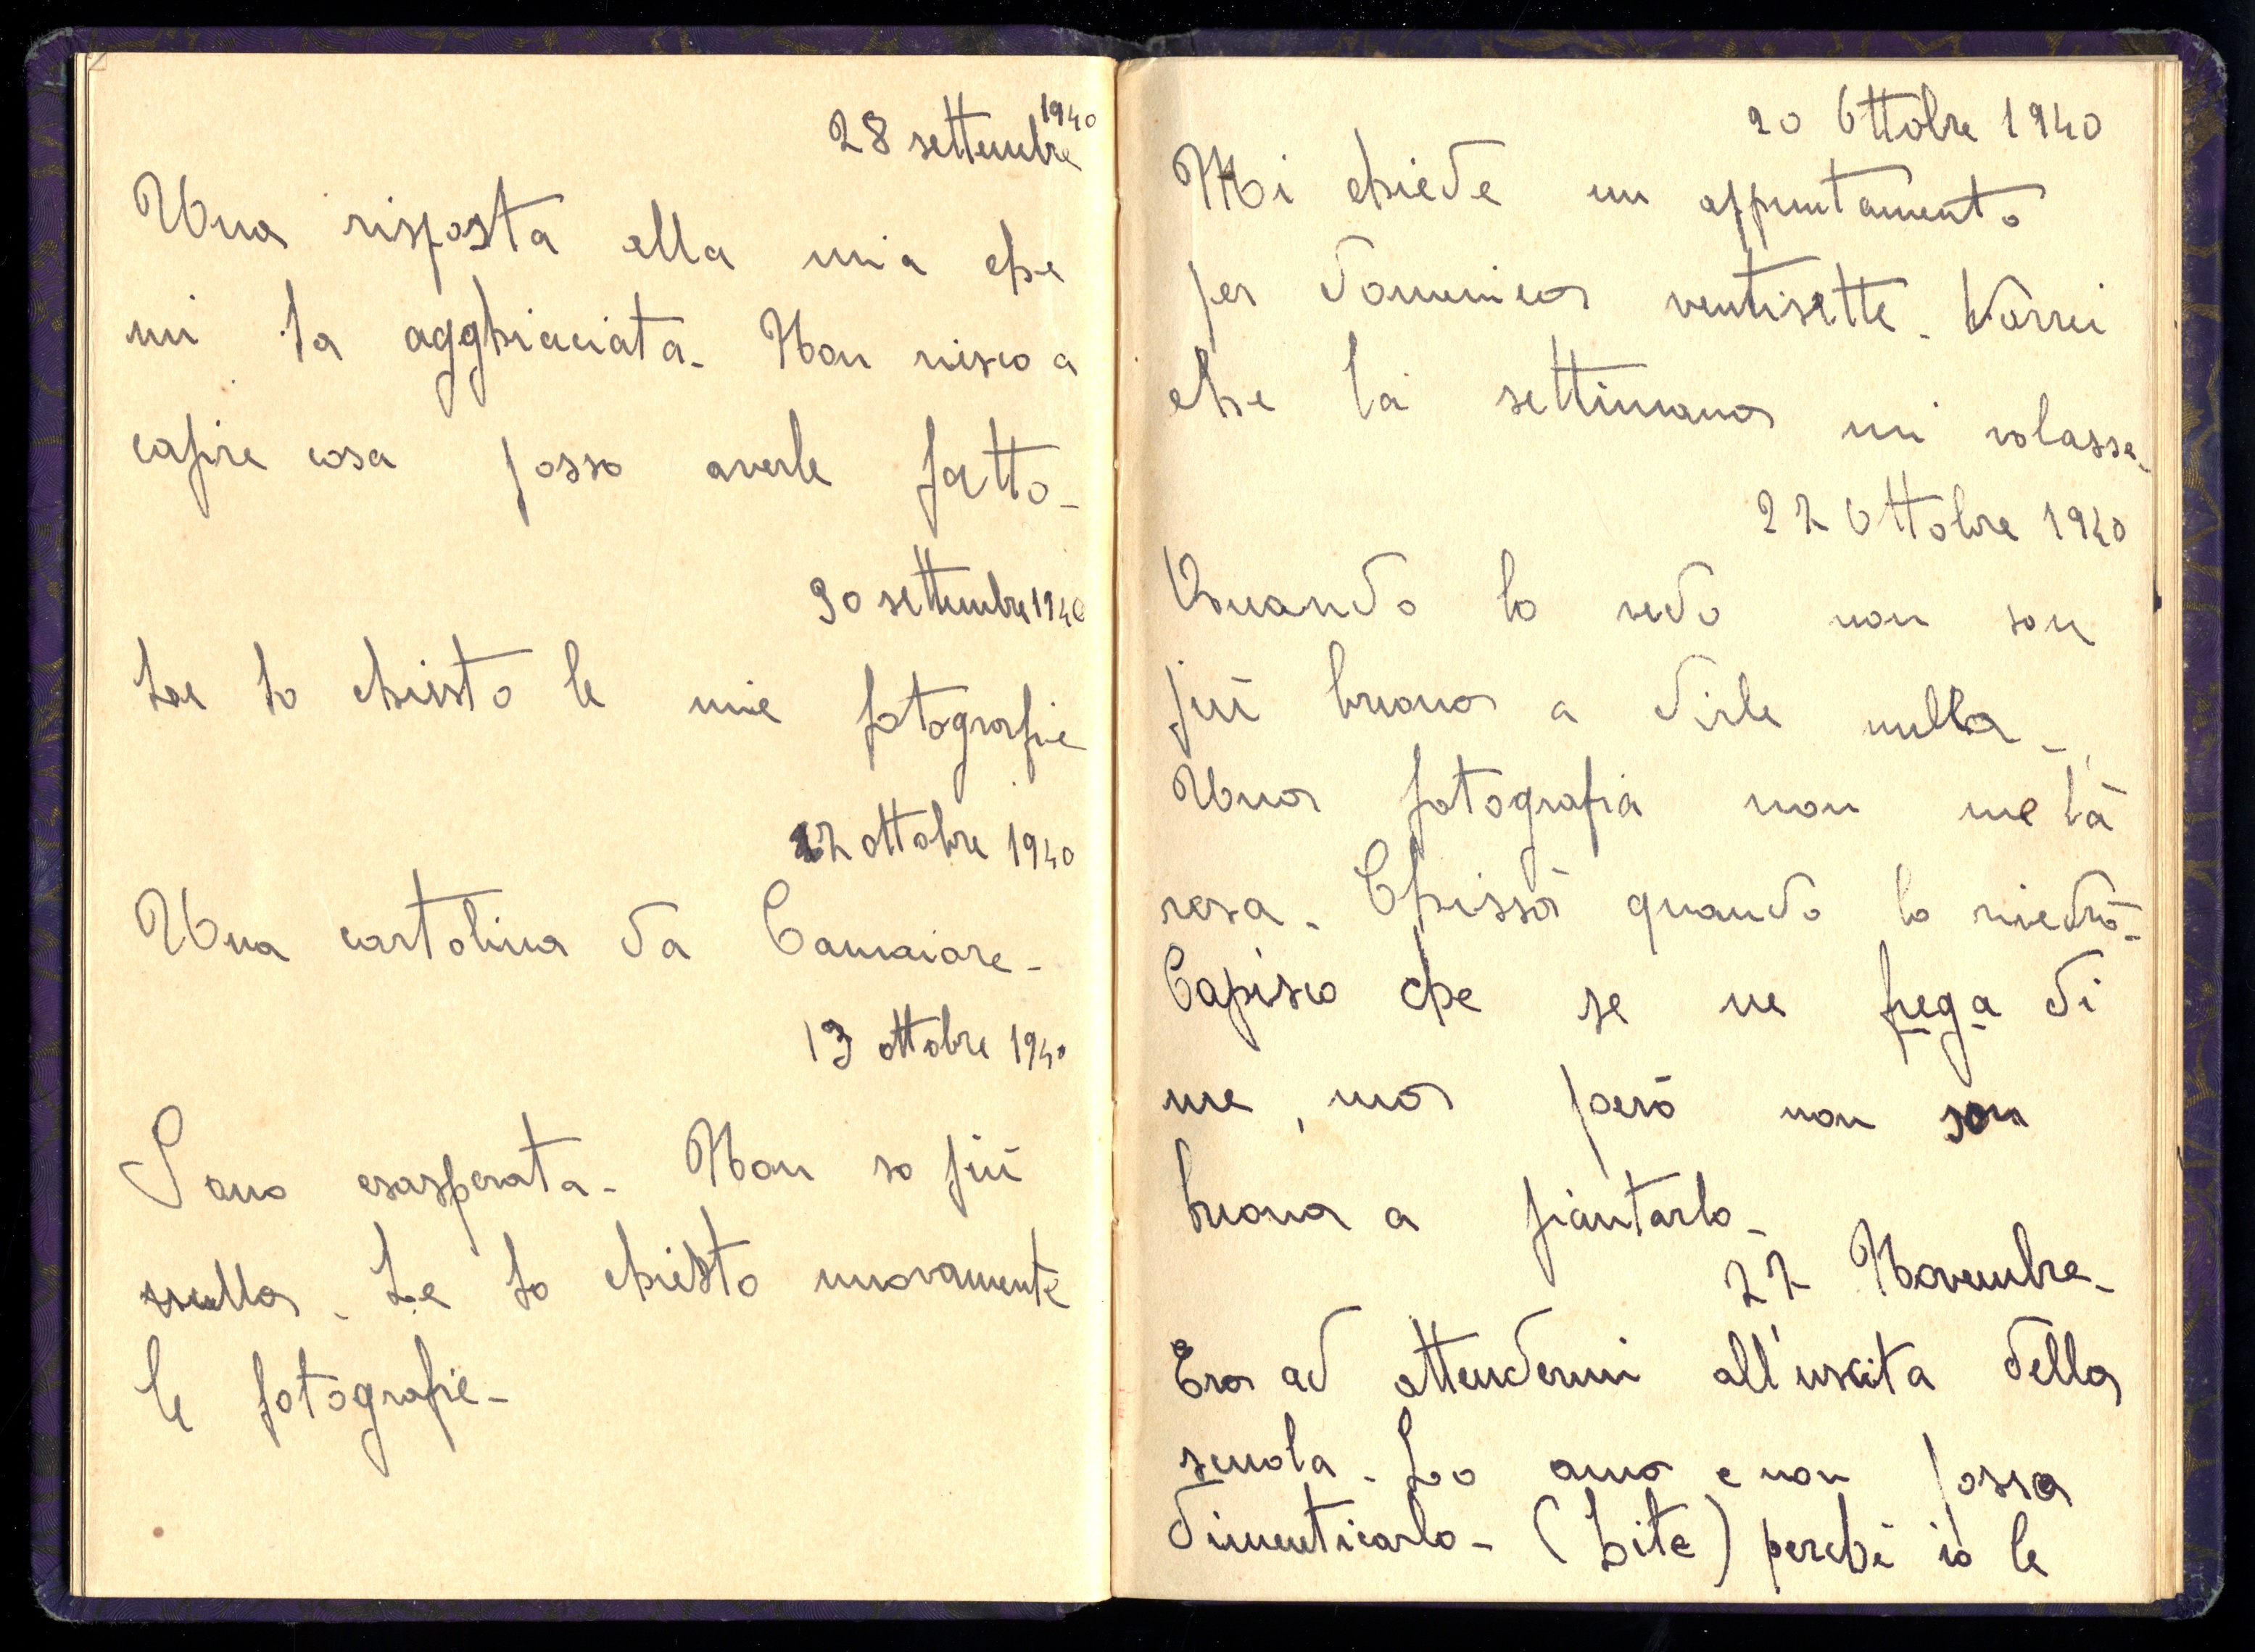 28 settembre 1940
Una risposta alla mia che
mi ha agghiaciata. Non riesco a
capire cosa posso averle fatto-
30 settembre 1940
Le ho chiesto le mie fotografie
12 ottobre 1940
Una cartolina da Camaiore-
13 ottobre 1940
Sono esasperata- Non so più
nulla. Le ho chiesto nuovamente
le fotografie-
20 Ottobre 1940
Mi chiede un appuntamento
per domenica ventisette. Vorrei
che la settimana mi volasse-
27 Ottobre 1940
Quando lo vedo non son
più buona a dirle nulla-
Una fotografia non me l'à
resa. Chissà quando lo riedrò-
Capisco che se ne frega di
me, ma però non son
buona a piantarlo-
27 Novembre-
Era ad attendermi all'uscita della
scuola. Lo amo e non posso
dimenticarlo- (Lite) perchè io le